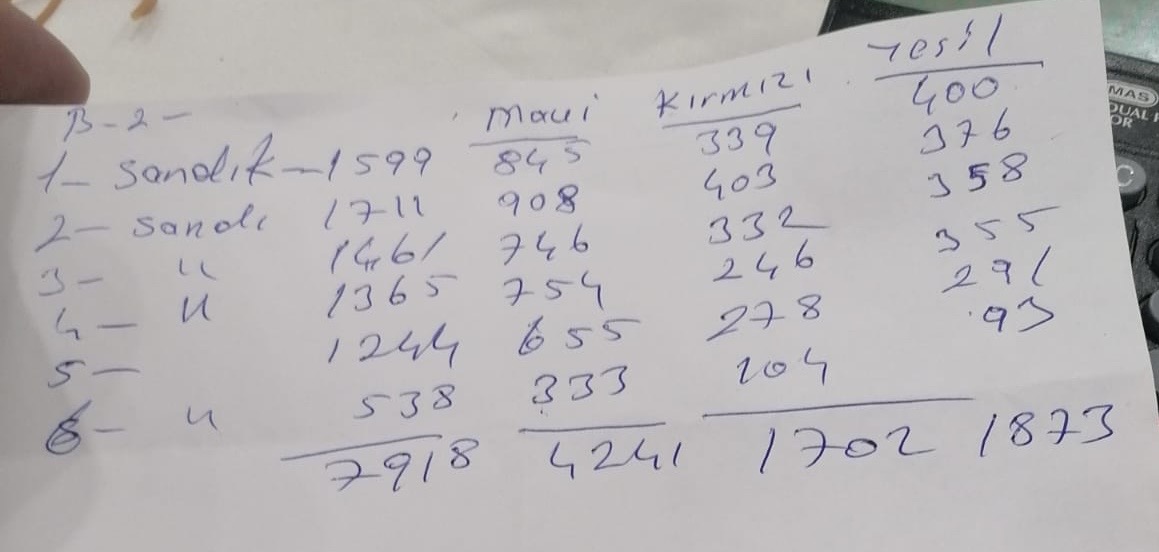 B-2- Mavi Kırmızı Yesil
1- Sandık - 1599 845 339 400
2- Sandı 1711 908 403 376
3- " 1461 746 332 358
4- " 1365 754 246 355
5- 1244 655 278 291
6- " 538 333 104 93
7918 4241 1702 1873
MAS